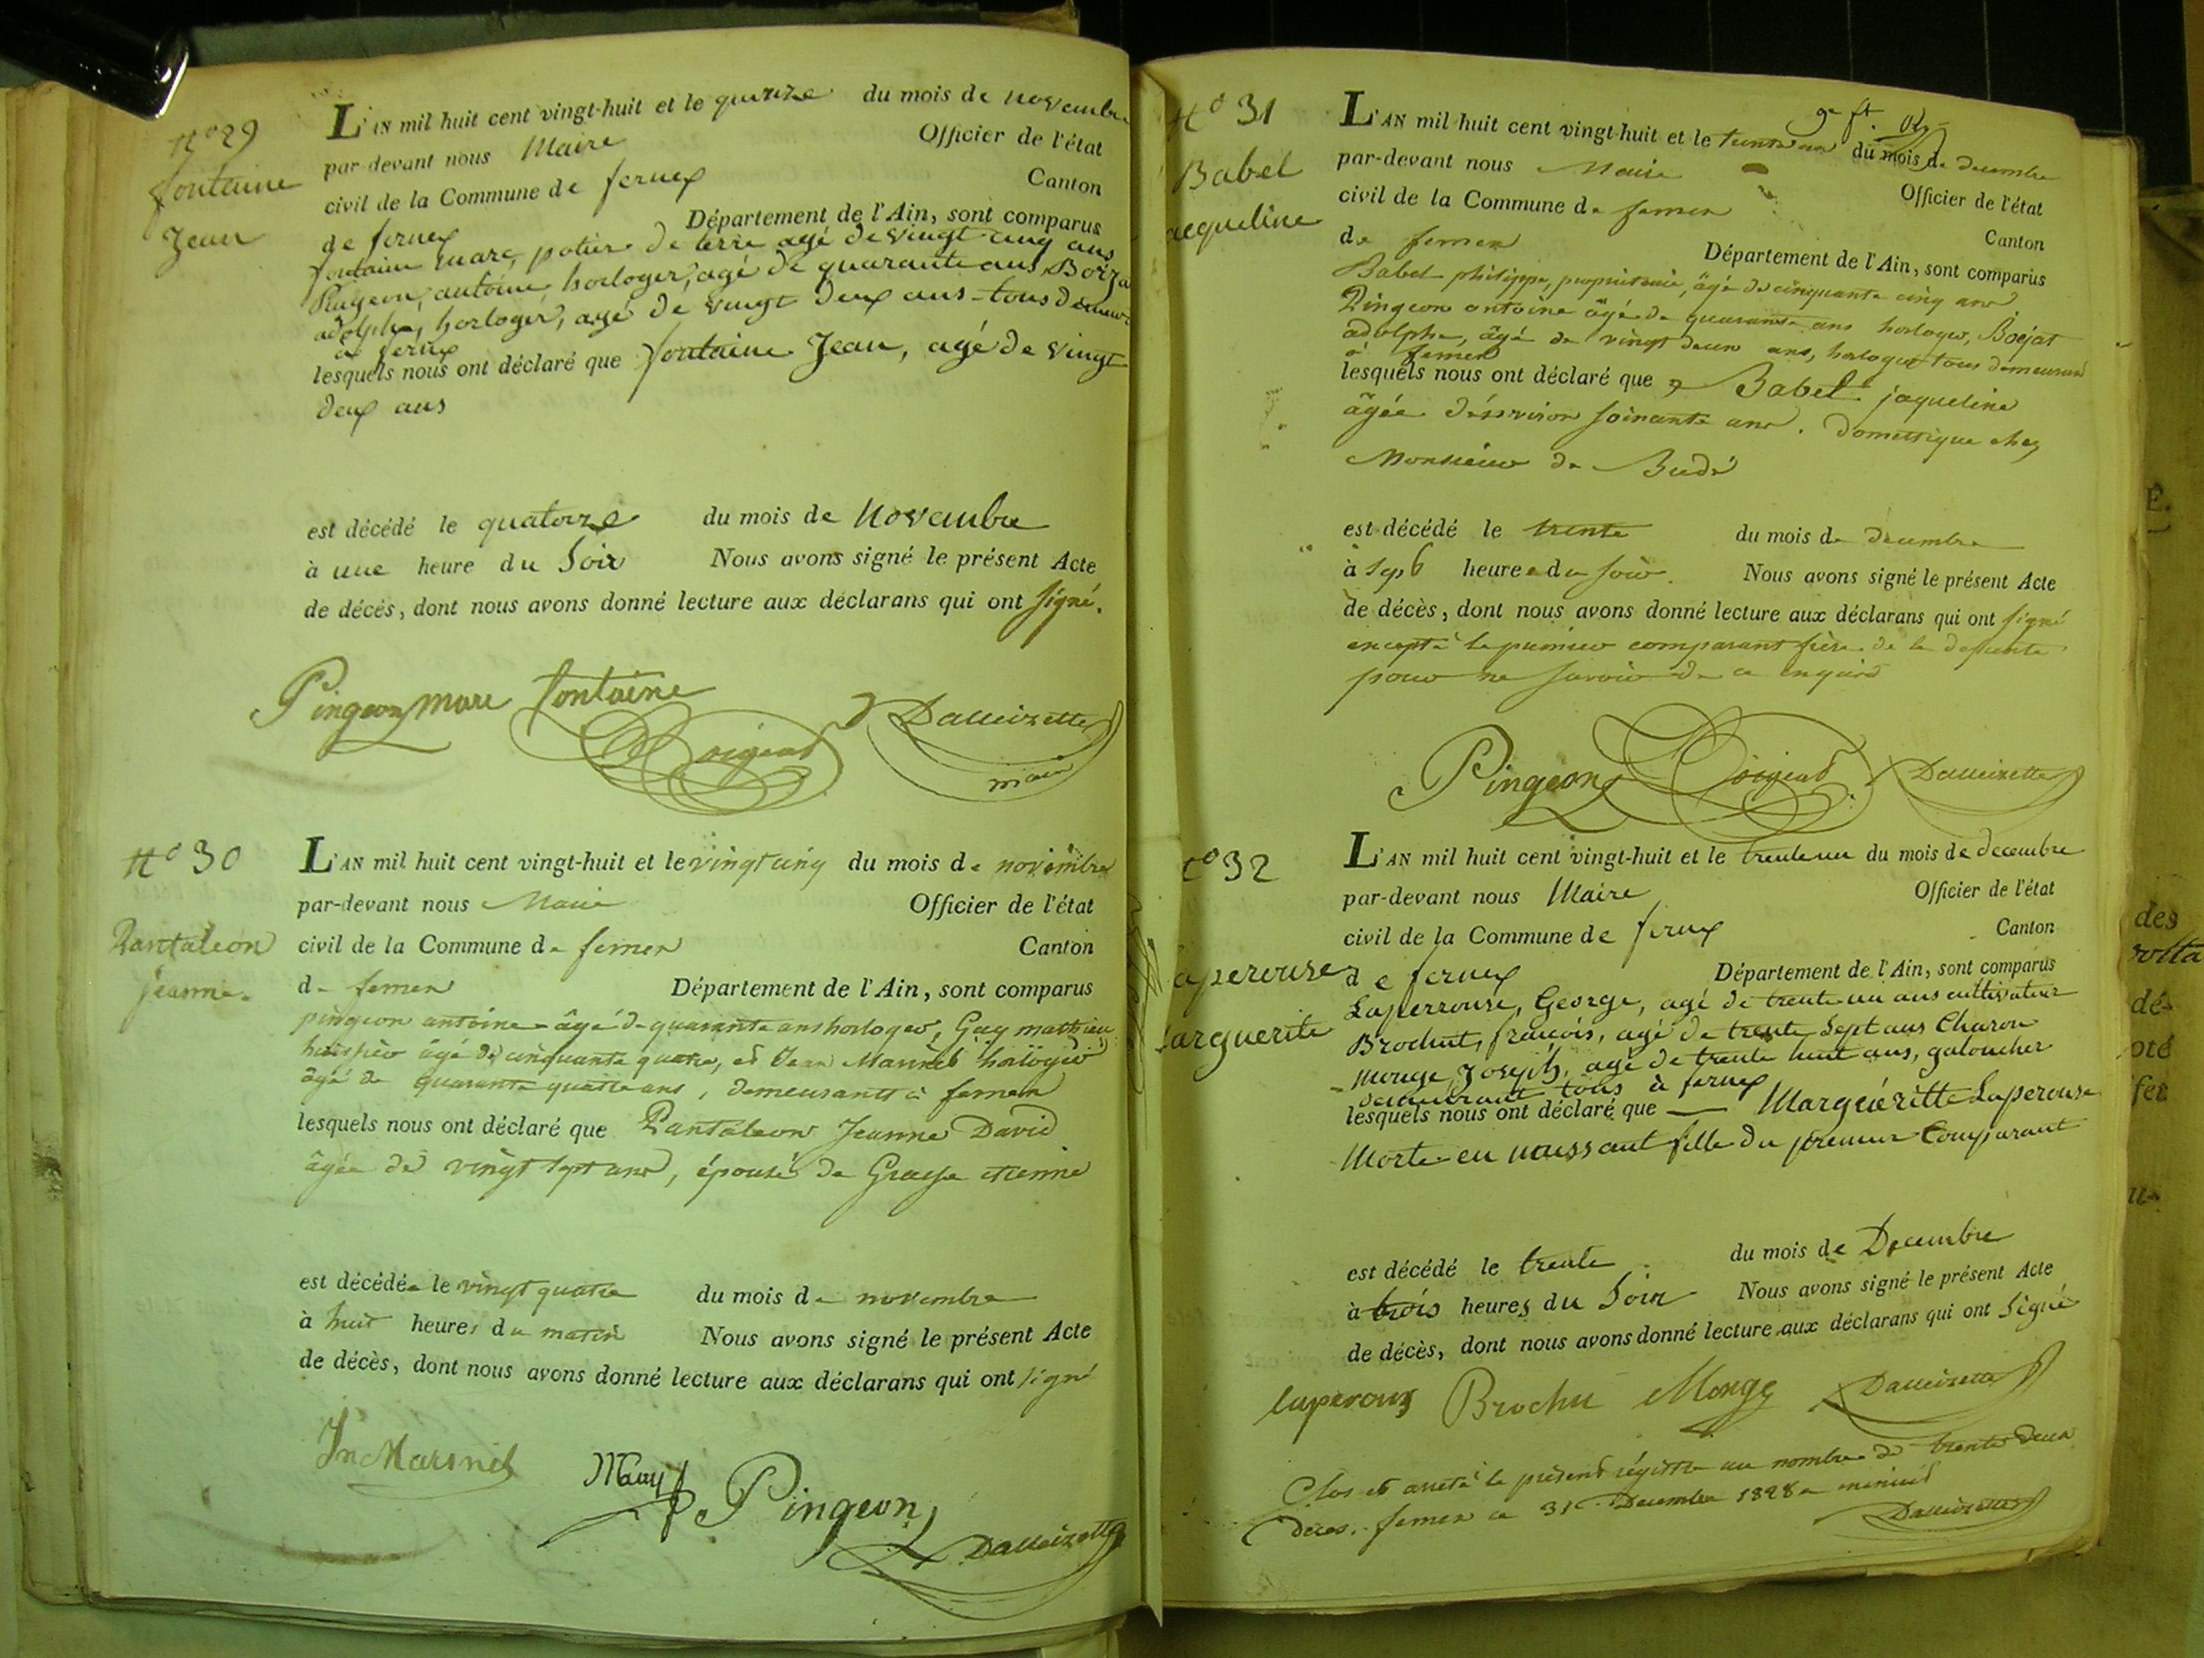 N° 29
fontaine
Jean
L'AN mil huit cent vingt-huit et le quinze du mois de novembre
par-devant nous Maire Officier de l'état
civil de la Commune de fernex Canton
de fernex Département de l'Ain, sont comparus
fontaine marc, potier de terre agé de vingt cinq ans
Pingeon, antoine horloger, agé de quarante ans, Boija
adolphe, horloger, agé de vingt deux ans tous demeur
a fernex
lesquels nous ont déclaré que fontaine Jean, agé de vingt
deux ans
est décédé le quatorze du mois de Novembre
à une heure du Soir Nous avons signé le présent Acte
de décès, dont nous avons donné lecture aux déclarans qui ont signé.
Pingeon marc fontaine
Boigeat Dalleizette
maire
N° 30
Pantaleon
jeanne.
L'AN mil huit cent vingt-huit et le vingt cinq du mois de novembre
par-devant nous Maire Officier de l'état
civil de la Commune de fernex Canton
de fernex Département de l'Ain, sont comparus
pingeon antoine âgé de quarante ans horloger, Guy mathieu
huissier âgé de cinquante quatre, et Jean horloger
âgé de quarante quatre ans, demeurants à fernex
lesquels nous ont déclaré que Pantaleon Jeanne David
âgée de vingt sept ans, épouse de etienne
est décédée le vingt quatre du mois de novembre
à huit heures du matin Nous avons signé le présent Acte
de décès, dont nous avons donné lecture aux déclarans qui ont signé
Pingeon
Dalleizette
N° 31
Babel
acqueline
L'AN mil huit cent vingt-huit et le trente un du mois de decembre
par-devant nous Maire Officier de l'état
civil de la Commune de fernex Canton
de fernex Département de l'Ain, sont comparus
Babel philippe, proprietaire, âgé de cinquante cinq ans
Pingeon antoine âgé de quarante ans horloger, Boejat
adolphe, âgé de vingt deux ans, horloger tous demeurant
à fernex
lesquels nous ont déclaré que Babel jaqueline
âgée d'environ soixante ans. domestique chez
Monsieur de Budé
est décédé le trente du mois de decembre
à sept heures du soir. Nous avons signé le présent Acte
de décès, dont nous avons donné lecture aux déclarans qui ont signé
excepté le premier comparant frère de la defunte
pour ne savoir de ce enquis
Pingeon Boigeat Dalleizette
N° 32
aperouse
arguerite
L'AN mil huit cent vingt-huit et le trente un du mois de decembre
par-devant nous Maire Officier de l'état
civil de la Commune de fernex Canton
de fernex Département de l'Ain, sont comparus
Laperrouse, George, agé de trente un ans cultivateur
Brochut, françois, agé de trente sept ans Charon
Monge, Joseph, agé de trente huit ans, galoucher
demeurant tous à fernex
lesquels nous ont déclaré que Marguéritte Laperouse
Morte en naissant fille du premier Comparant
est décédé le trente du mois de Decembre
à trois heures du Soir Nous avons signé le présent Acte
de décès, dont nous avons donné lecture aux déclarans qui ont Signé
laperouz Brochu Monge Dalleizette
Clos et arreté le présent régistre au nombre de trente deux
décès. fernex ce 31 Decembre 1828 a minuit
Dalleizette